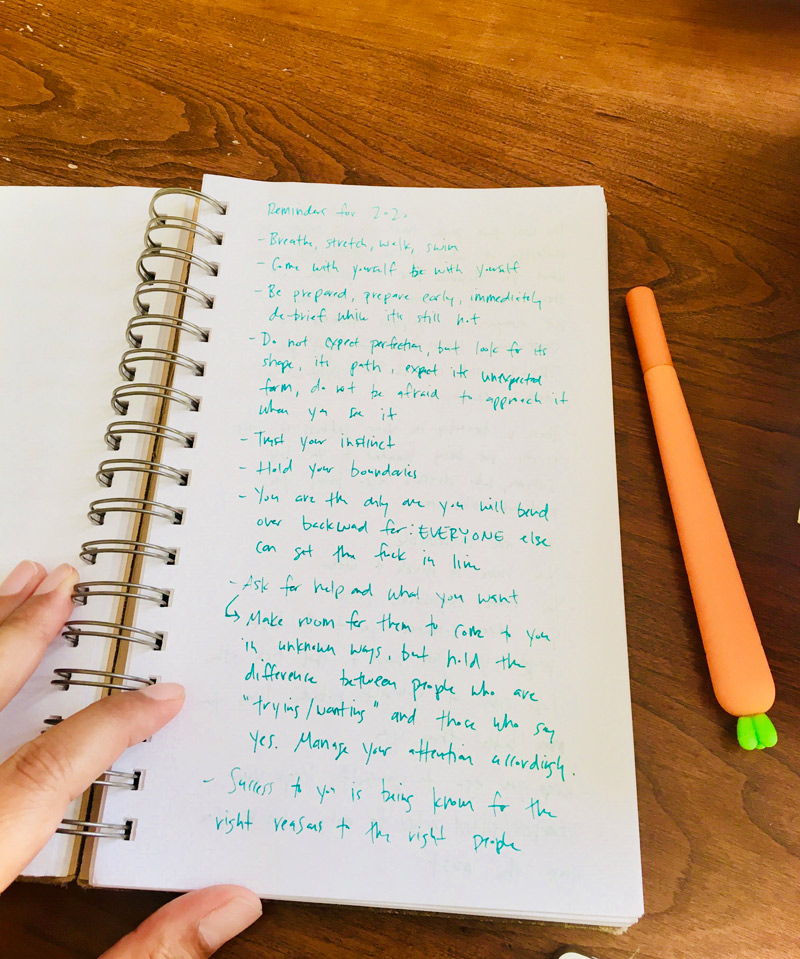 Reminders for 2020
- Breathe, stretch, walk, swim
- Come with yourself be with yourself
- Be prepared, prepare early, immediately
de-brief while its still hot
- Do not expect perfection, but look for its
shape, its path, expect its unexpected
form, do not be afraid to approach it
when you see it
- Trust your instinct
- Hold your boundaries
- You are the only one you will bend
over backward for: EVERYONE else
can get the fuck in line
- Ask for help and what you want
↳ Make room for them to come to you
in unknown ways, but hold the
difference between people who are
"trying/wanting" and those who say
yes. Manage your attention accordingly.
- Success to you is being known for the
right reasons to the right people